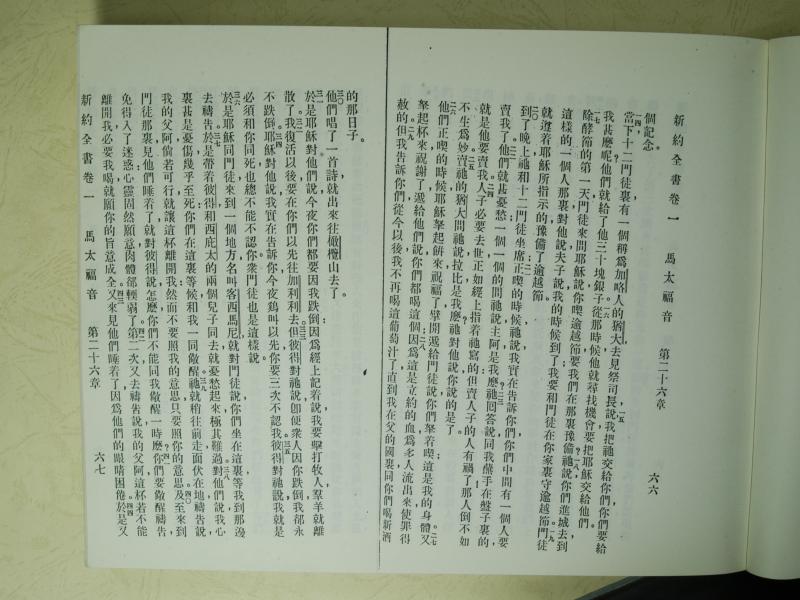 新約全書卷一 馬太福音 第二十六章 六六
個記念。
一四當下十二門徒裏有一個稱爲加略人的猶大去見祭司長、一五說我把祂交給你們你們要給
我甚麽呢？他們就給了他三十塊銀子一六從那時候他就尋找機會要把耶穌交給他們。
一七除酵節的第一天門徒來問耶穌說你喫逾越節要我們在那裏豫備？一八祂說你們進城去到
這樣的一個人那裏對他說夫子說我的時候到了我要和門徒在你家裏守逾越節一九門徒
就遵着耶穌所指示的豫備了逾越節。
二〇到了晚上祂和十二門徒坐席二一正喫的時候祂說我實在告訴你們你們中間有一個人要
賣我了二二他們就甚憂愁一個一個的問祂說主阿是我麽？二三祂回答說同我蘸手在盤子裏的
就是他要賣我二四人子必要去世正如經上指着祂寫的但賣人子的人有禍了那人倒不如
不生爲妙二五賣祂的猶大問祂說拉比是我麽？祂對他說你說的是了。
二六他們正喫的時候耶穌拏起餅來祝福了擘開遞給門徒說你們拏着喫這是我的身體二七又
拏起杯來祝謝了遞給他們說你們都喝這個二八因爲這是立約的血爲多人流出來使罪得
赦的二九但我告訴你們從今以後我不再喝這葡萄汁了直到我在父的國裏同你們喝新酒
的那日子。
三〇他們唱了一首詩就出來往橄欖山去了。
三一於是耶穌對他們說今夜你們都要因我跌倒因爲經上記着說我要擊打牧人羣羊就離
散了三二我復活以後要在你們以先往加利利去三三但彼得對祂說卽便衆人因你跌倒我郤永
不跌倒三四耶穌對他說我實在告訴你今夜鷄叫以先你要三次不認我三五彼得對祂說我就是
必須和你同死也總不能不認你衆門徒也是這樣說。
三六於是耶穌同門徒來到一個地方名叫客西馬尼就對門徒說你們坐在這裏等我到那邊
去禱告三七於是帶着彼得和西庇太的兩個兒子同去就憂愁起來極其難過三八對他們說我心
裏甚是憂傷幾乎至死你們在這裏等候和我一同儆醒三九祂就稍往前走面伏在地禱告說
我的父阿倘若可行就讓這杯離開我然而不要照我的意思只要照你的意思四〇及至來到
門徒那裏見他們睡着了就對彼得說怎麽你們不能同我儆醒一時麽？四一你們要儆醒禱告
免得入了迷惑心靈固然願意肉體郤輭弱了四二第二次又去禱告說我的父阿這杯若不能
離開我必要我喝就願你的旨意成全四三又來見他們睡着了因爲他們的眼睛困倦四四於是又
新約全書卷一 馬太福音 第二十六章 六七